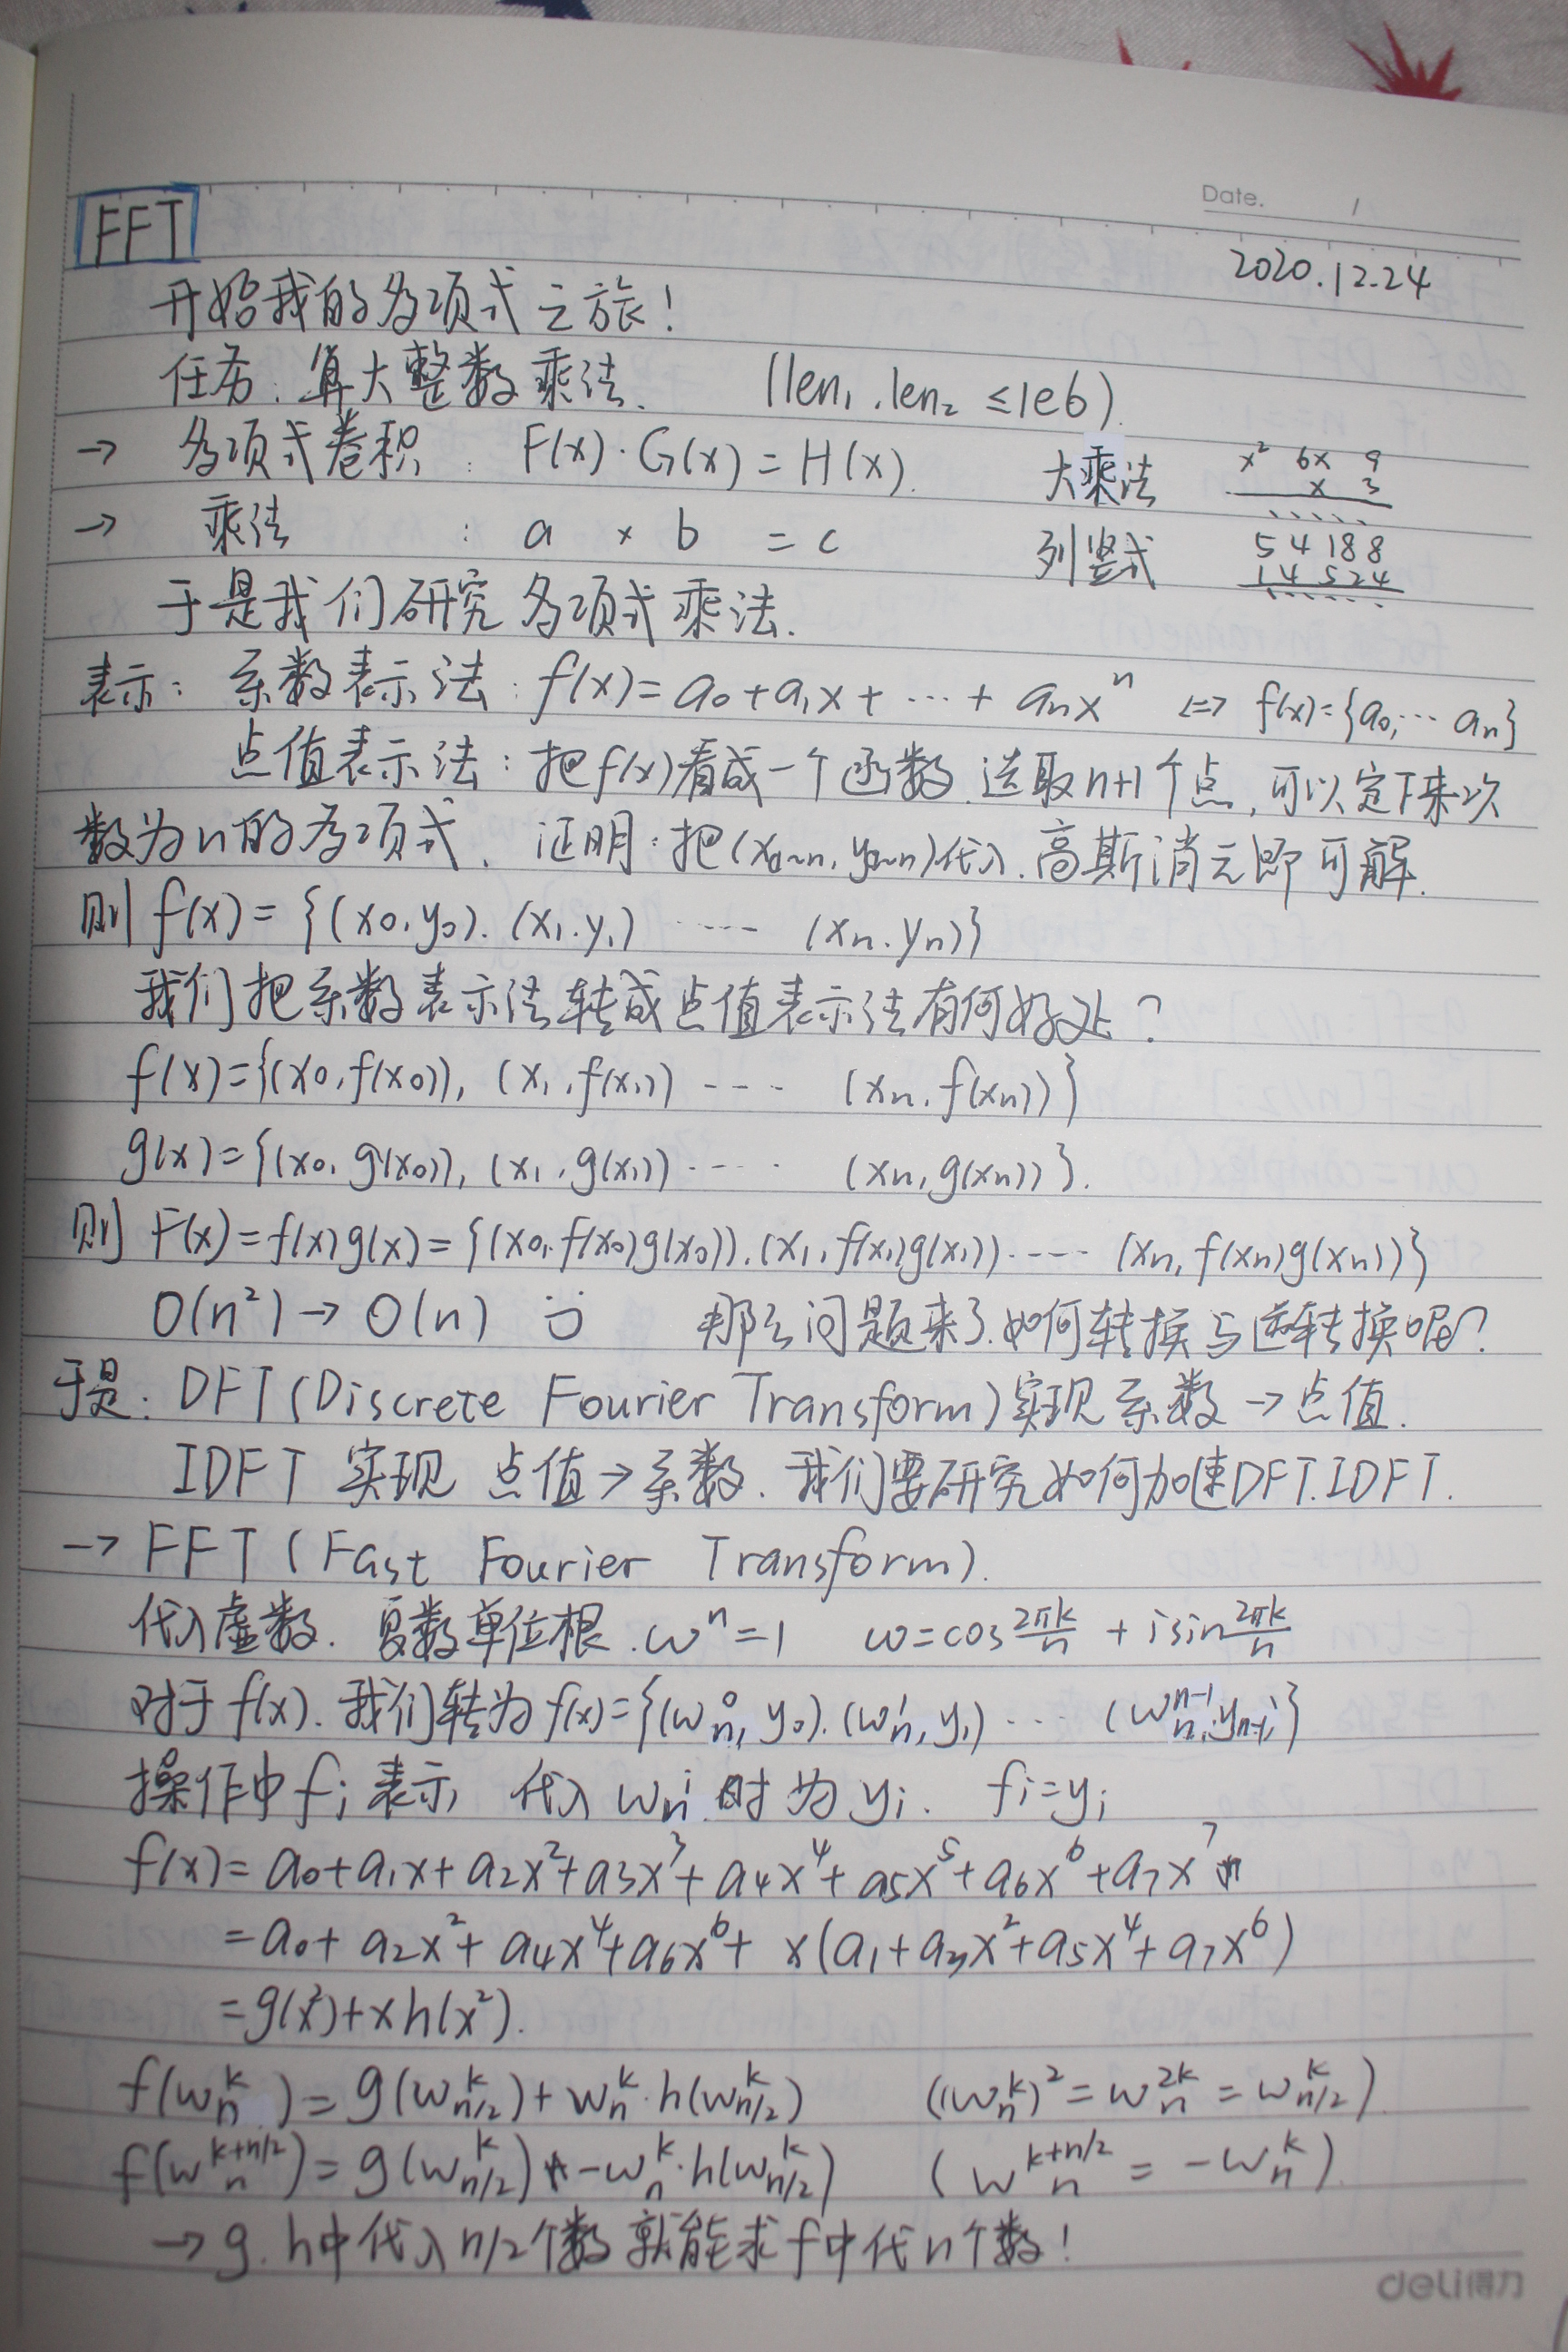 Date. /
FFT
2020.12.24
开始我的多项式之旅!
任务:算大整数乘法. (len₁,len₂ ≤1e6).
→ 多项式卷积: F(x)·G(x)=H(x). 大乘法 x² 6x 9
x 3
→ 乘法 : a × b = c 列竖式 54188
14524
于是我们研究多项式乘法.
表示: 系数表示法: f(x)=a₀+a₁x+…+aₙxⁿ <=> f(x)={a₀,…aₙ}
点值表示法:把f(x)看成一个函数.选取n+1个点,可以定下来次
数为n的多项式. 证明:把(x₀~ₙ,y₀~ₙ)代入.高斯消元即可解.
则 f(x)={(x₀,y₀).(x₁.y₁) ---- (xₙ.yₙ)}
我们把系数表示法转成点值表示法有何好处?
f(x)={(x₀,f(x₀)), (x₁,f(x₁)) ---- (xₙ.f(xₙ))}
g(x)={(x₀,g(x₀)), (x₁,g(x₁)) ---- (xₙ,g(xₙ))}.
则 F(x)=f(x)g(x)={(x₀,f(x₀)g(x₀)).(x₁,f(x₁)g(x₁)) ---- (xₙ,f(xₙ)g(xₙ))}
O(n²)→O(n) 那么问题来了.如何转换与逆转换呢?
于是: DFT(Discrete Fourier Transform)实现系数→点值.
IDFT 实现 点值→系数. 我们要研究如何加速DFT.IDFT.
→ FFT (Fast Fourier Transform).
代入虚数. 复数单位根.ωⁿ=1 ω=cos 2πk/n + i sin 2πk/n
对于f(x).我们转为f(x)={(ωₙ⁰,y₀).(ωₙ¹,y₁)… (ωₙⁿ⁻¹,yₙ₋₁)}
操作中fᵢ表示 代入ωₙⁱ时为yᵢ. fᵢ=yᵢ
f(x)=a₀+a₁x+a₂x²+a₃x³+a₄x⁴+a₅x⁵+a₆x⁶+a₇x⁷
=a₀+a₂x²+a₄x⁴+a₆x⁶+ x(a₁+a₃x²+a₅x⁴+a₇x⁶)
=g(x²)+xh(x²).
f(ωₙᵏ)=g(ω_{n/2}^k)+ωₙᵏ·h(ω_{n/2}^k) ((ωₙᵏ)²=ωₙ²ᵏ=ω_{n/2}^k).
f(ω_n^{k+n/2})=g(ω_{n/2}^k)-ωₙᵏ·h(ω_{n/2}^k) (ω_n^{k+n/2}=-ωₙᵏ).
→g.h中代入n/2个数就能求f中代n个数!
deli得力